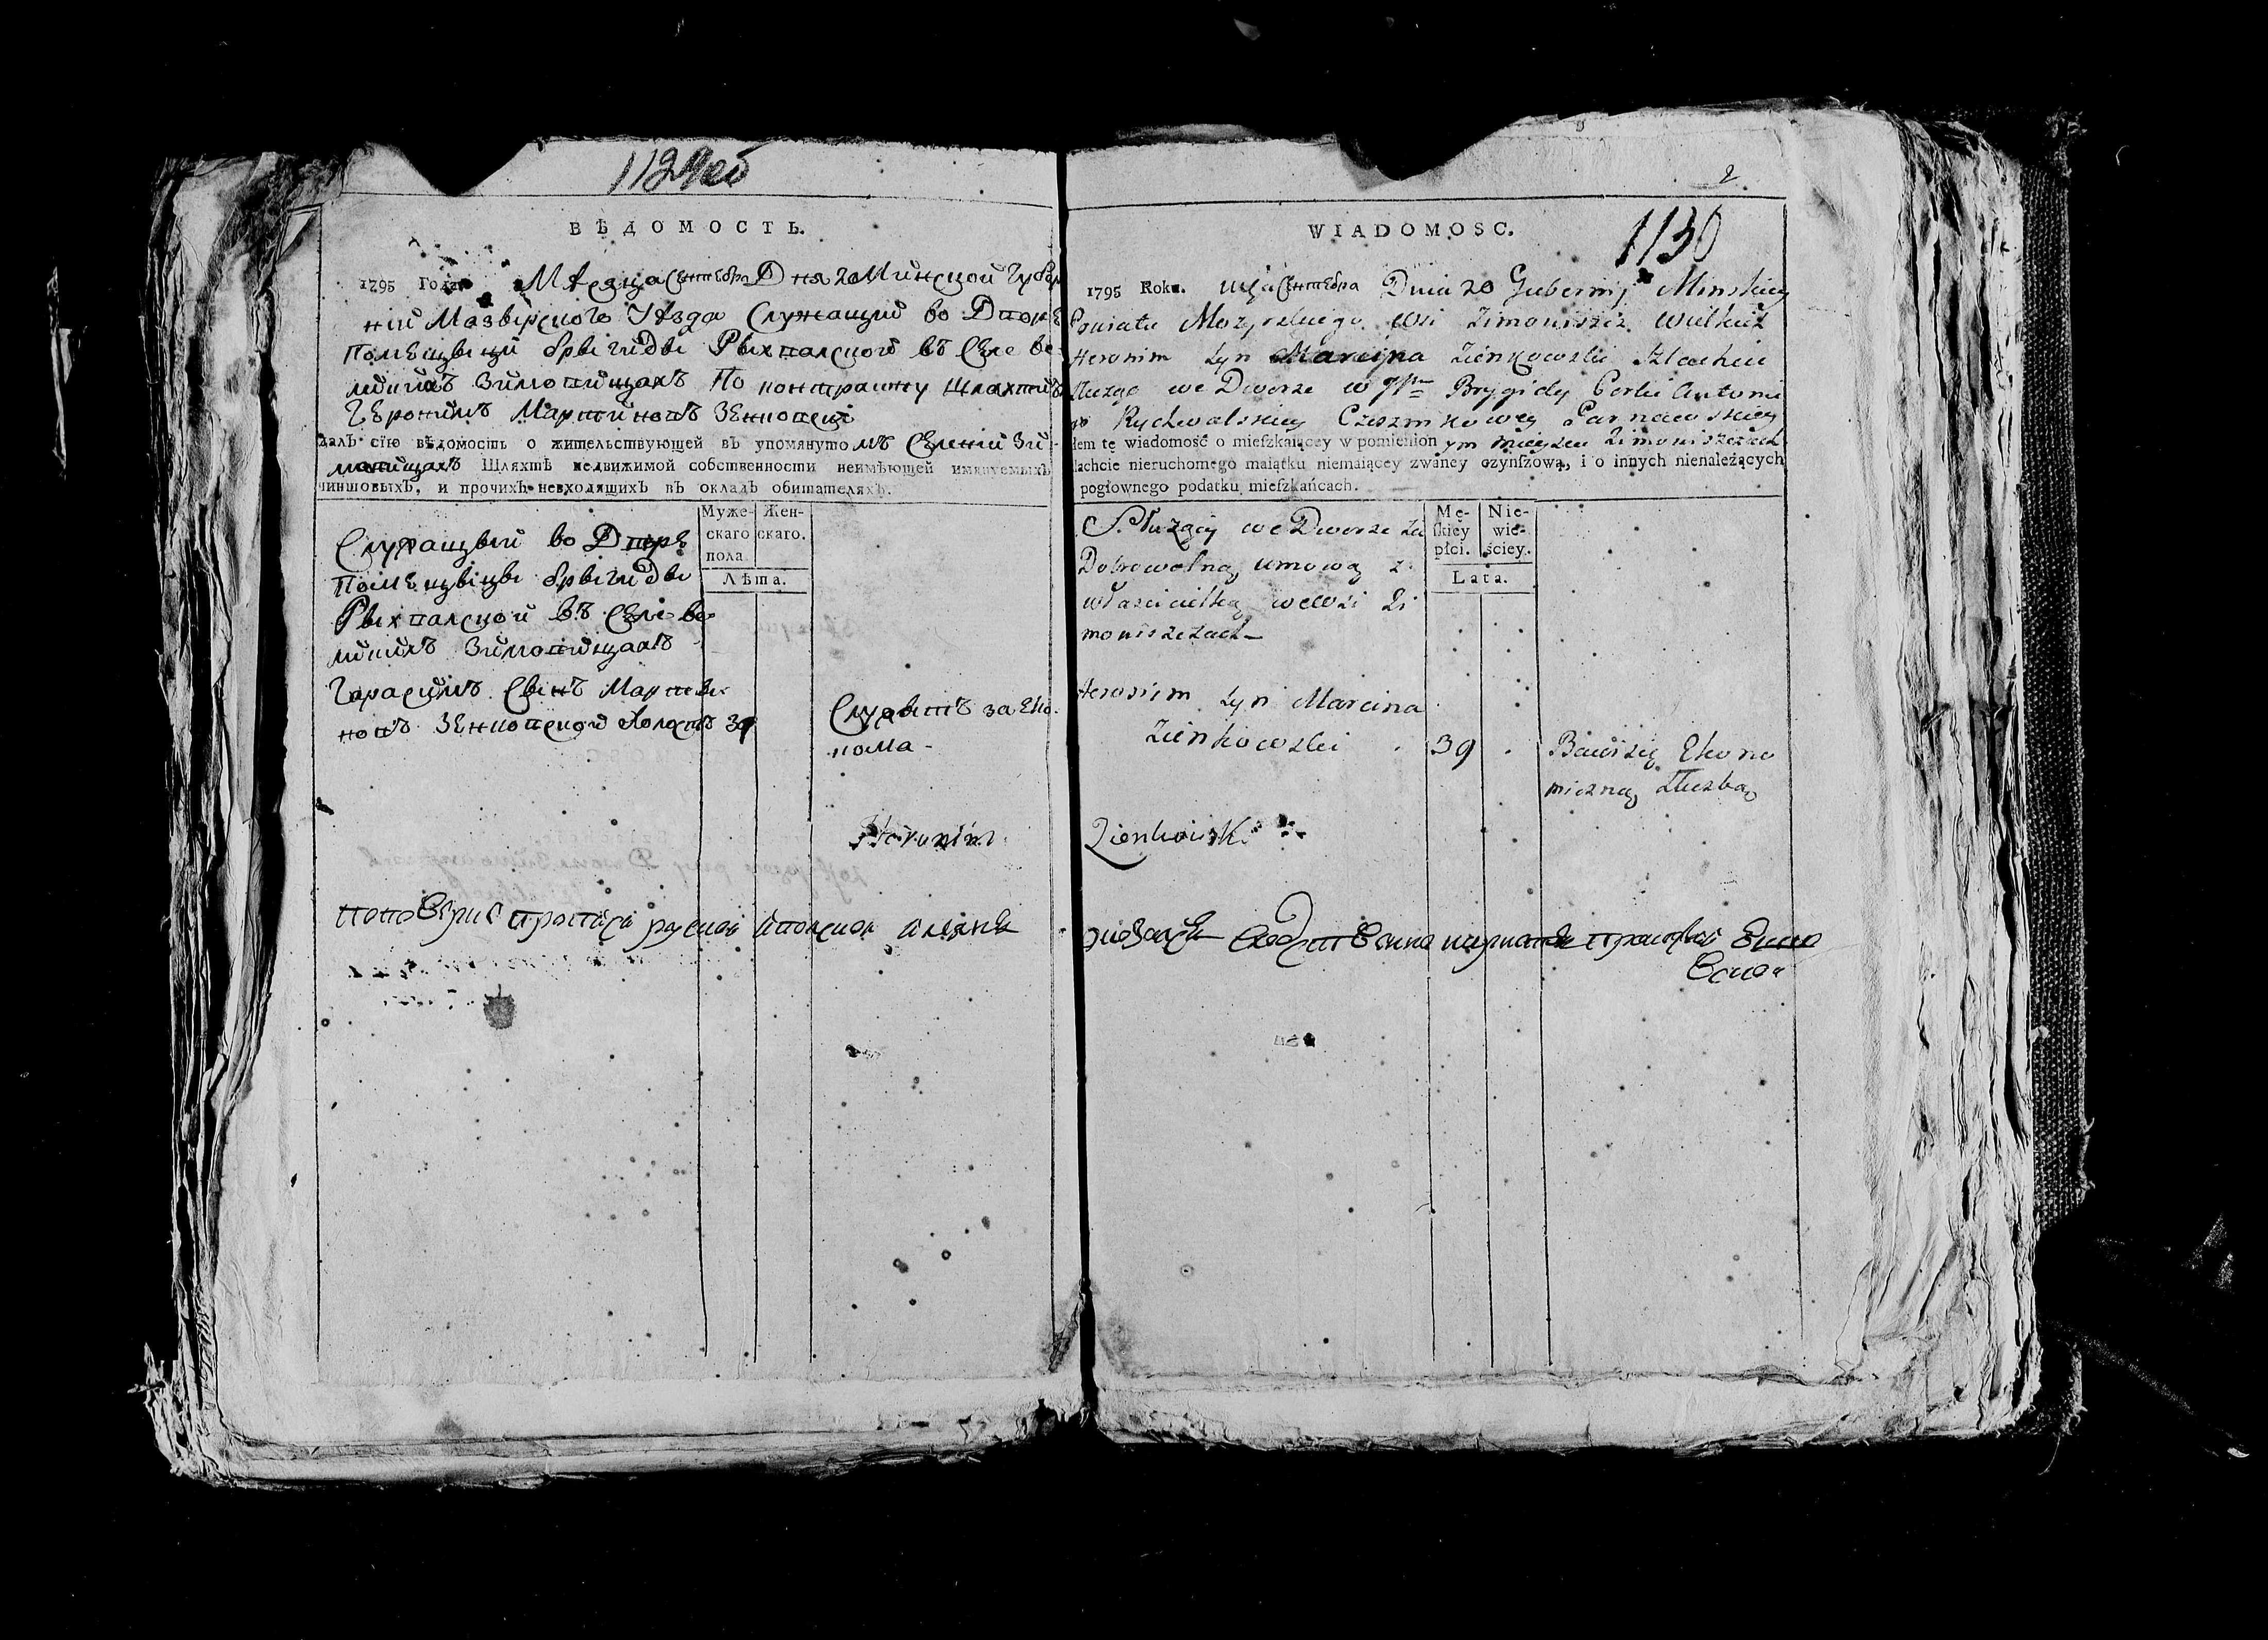 1129об
ВѢДОМОСТЬ.
1795 Года Мѣсяца Сентебра Дня 20 Минской Губер
ніи Мазырского Уѣзда Служащий во Дворе
Помещыцы Брыгиды Рыхвалской въ Селе Ве
ликихъ Зимовищахъ По контракту Шляхтичъ
Геронимъ Мартиновъ Зенковски
далъ сїю вѣдомость о жительствующей въ упомянутомъ Селении Зи-
мовищахъ Шляхтѣ недвижимой собственности неимѣющей имянуемыхъ
чиншовыхъ, и прочихъ невходящихъ въ окладъ обитателяхъ.
Муже-скаго пола.
Жен-скаго.
Лѣта.
Служащый во Дворе
Помещыцы Брыгиды
Рыхвалской въ Селе Ве-
ликихъ Зимовищахъ
Гарасимъ Сынъ Марты-
новъ Зенковской Холостъ 39
Служытъ за Еко-
нома -
Heronim
2
1130
WIADOMOSC.
1795 Roku. Сентебра Dnia 20 Gubernij Minskiey
Powiatu Mozyrskiego Wsi Zimowiszcz Wielkich
Heronim Syn Marcina Zienkowski Szlachcic
Służąc we Dworze Brygidy Antoni
Rychwalskiey Czeszmikowey Parnawskiey
łem tę wiadomość o mieszkaiącey w pomienionym mieyscu Zimowiszczach
lachcie nieruchomego maiątku niemaiącey zwaney czynszową, i o innych nienależących
pogłownego podatku mieszkańcach.
Mę-skiey płci.
Nie-wie-ściey.
Lata.
Służący we Dworze za
Dobrowolną umową z
właścicielką we Wsi Zi
mowiszczach
Heronim Syn Marcina
Zienkowski 39
Bawiący Ekono
miczną służbą
Zienkowski